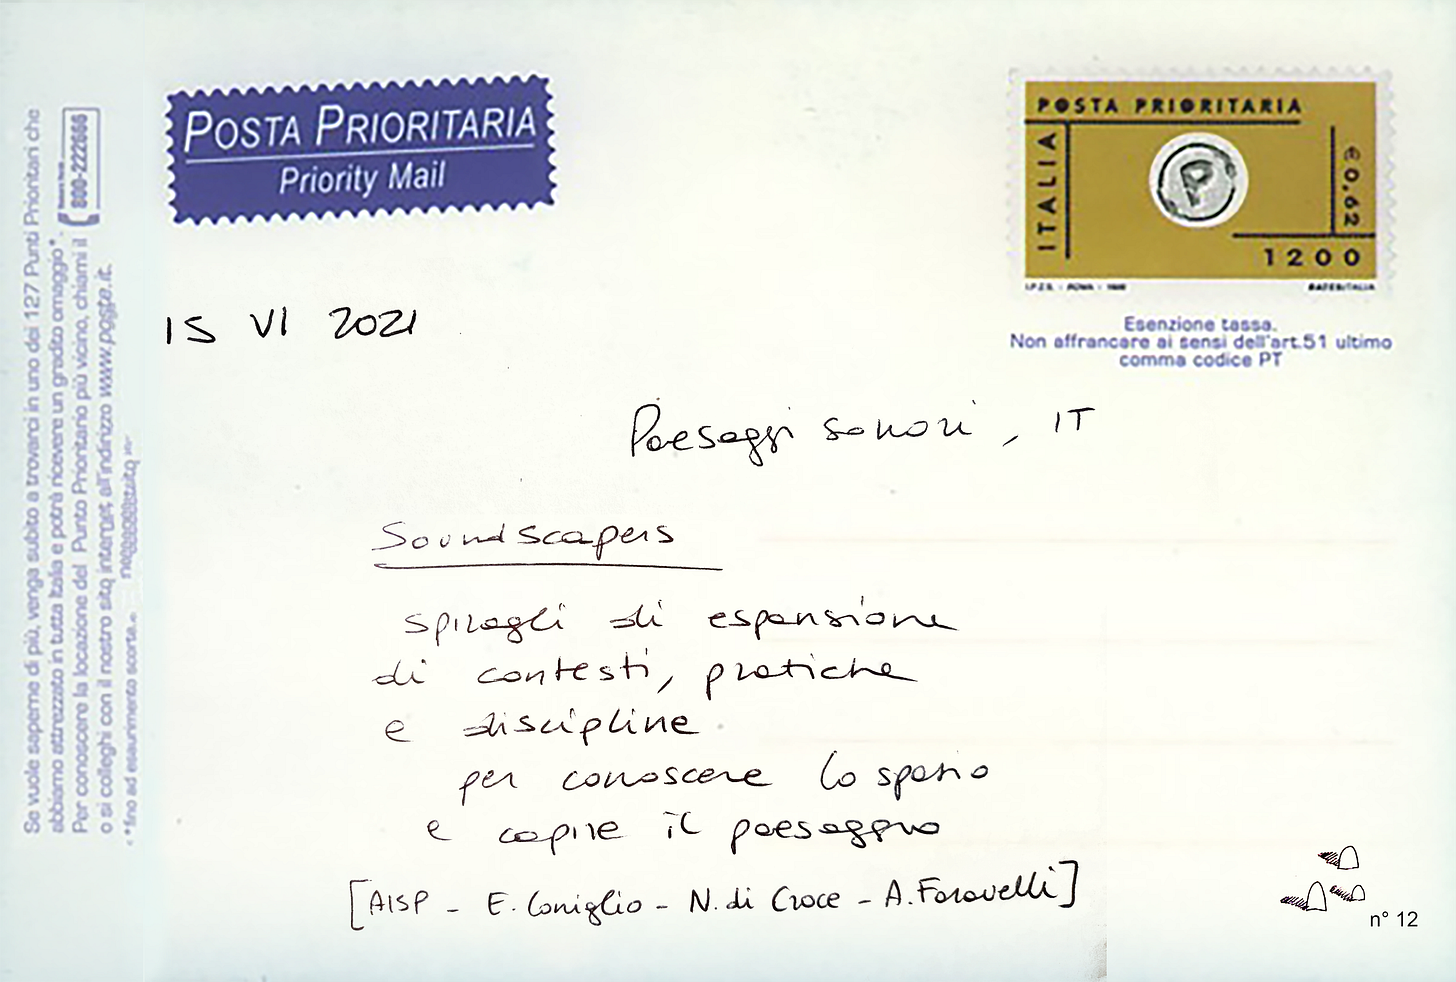 Se vuole saperne di più, venga subito a trovarci in uno dei 127 Punti Prioritari che
abbiamo attrezzato in tutta Italia e potrà ricevere un gradito omaggio*.
Per conoscere la locazione del Punto Prioritario più vicino, chiami il
800-222666
o si colleghi con il nostro sito internet all'indirizzo www.poste.it.
*fino ad esaurimento scorte.
POSTA PRIORITARIA
Priority Mail
POSTA PRIORITARIA
ITALIA
P
€0,62
1200
I.P.Z.S. - ROMA - 1999
Esenzione tassa.
Non affrancare ai sensi dell'art.51 ultimo
comma codice PT
15 VI 2021
Paesaggi sonori, IT
Soundscapers
spiragli di espansione
di contesti, pratiche
e discipline
per conoscere lo spazio
e capire il paesaggio
[AISP - E. Coniglio - N. di Croce - A. Faravelli]
n° 12